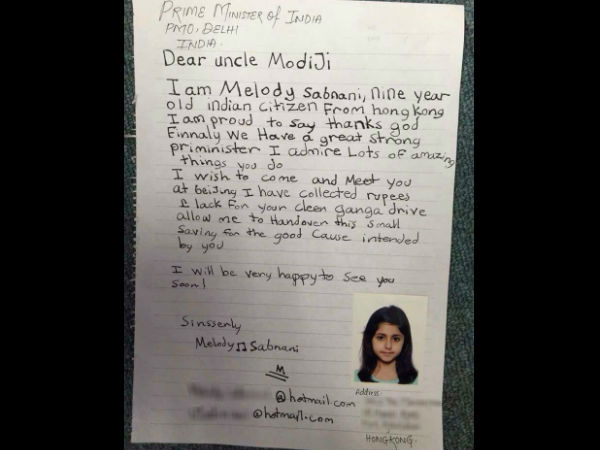 PRIME MINISTER OF INDIA
PMO, DELHI
INDIA.
Dear uncle ModiJi
I am Melody Sabnani, nine year
old indian citizen From hongkong
I am proud to say thanks god
Finnaly We Have a great strong
priminister I admire Lots of amazing
things you do
I wish to come and Meet you
at beiJing I have collected rupees
1 lack For your cleen ganga drive
allow me to Handover this small
Saving for the good Cause intended
by you
I will be very happy to see you
soon!
Sinssenly
Melody♫Sabnani
M
@hotmail.com
@hotmail.com
Address:
HONGKONG.